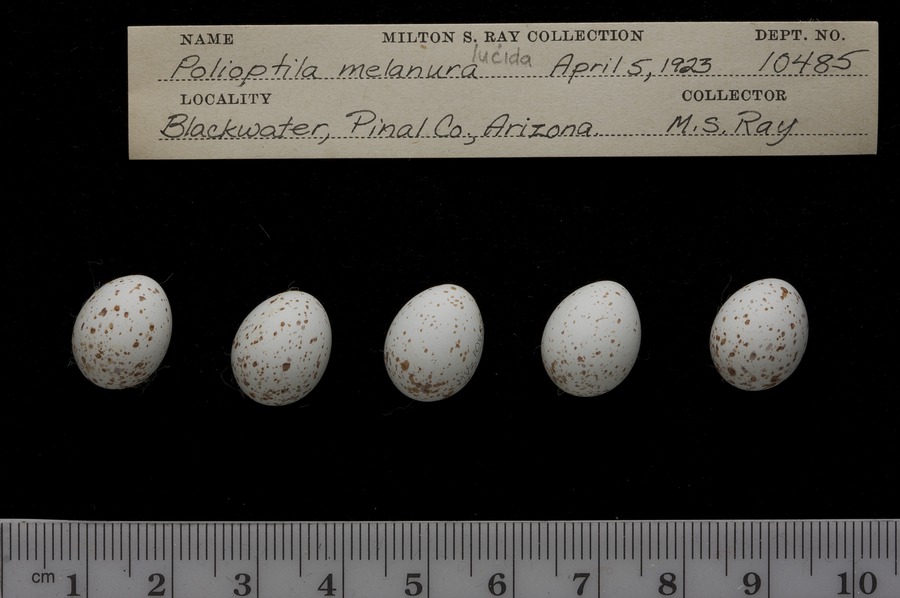 NAME MILTON S. RAY COLLECTION DEPT. NO.
Polioptila melanura lucida April 5, 1923 10485
LOCALITY COLLECTOR
Blackwater, Pinal Co., Arizona. M.S. Ray
cm 1 2 3 4 5 6 7 8 9 10